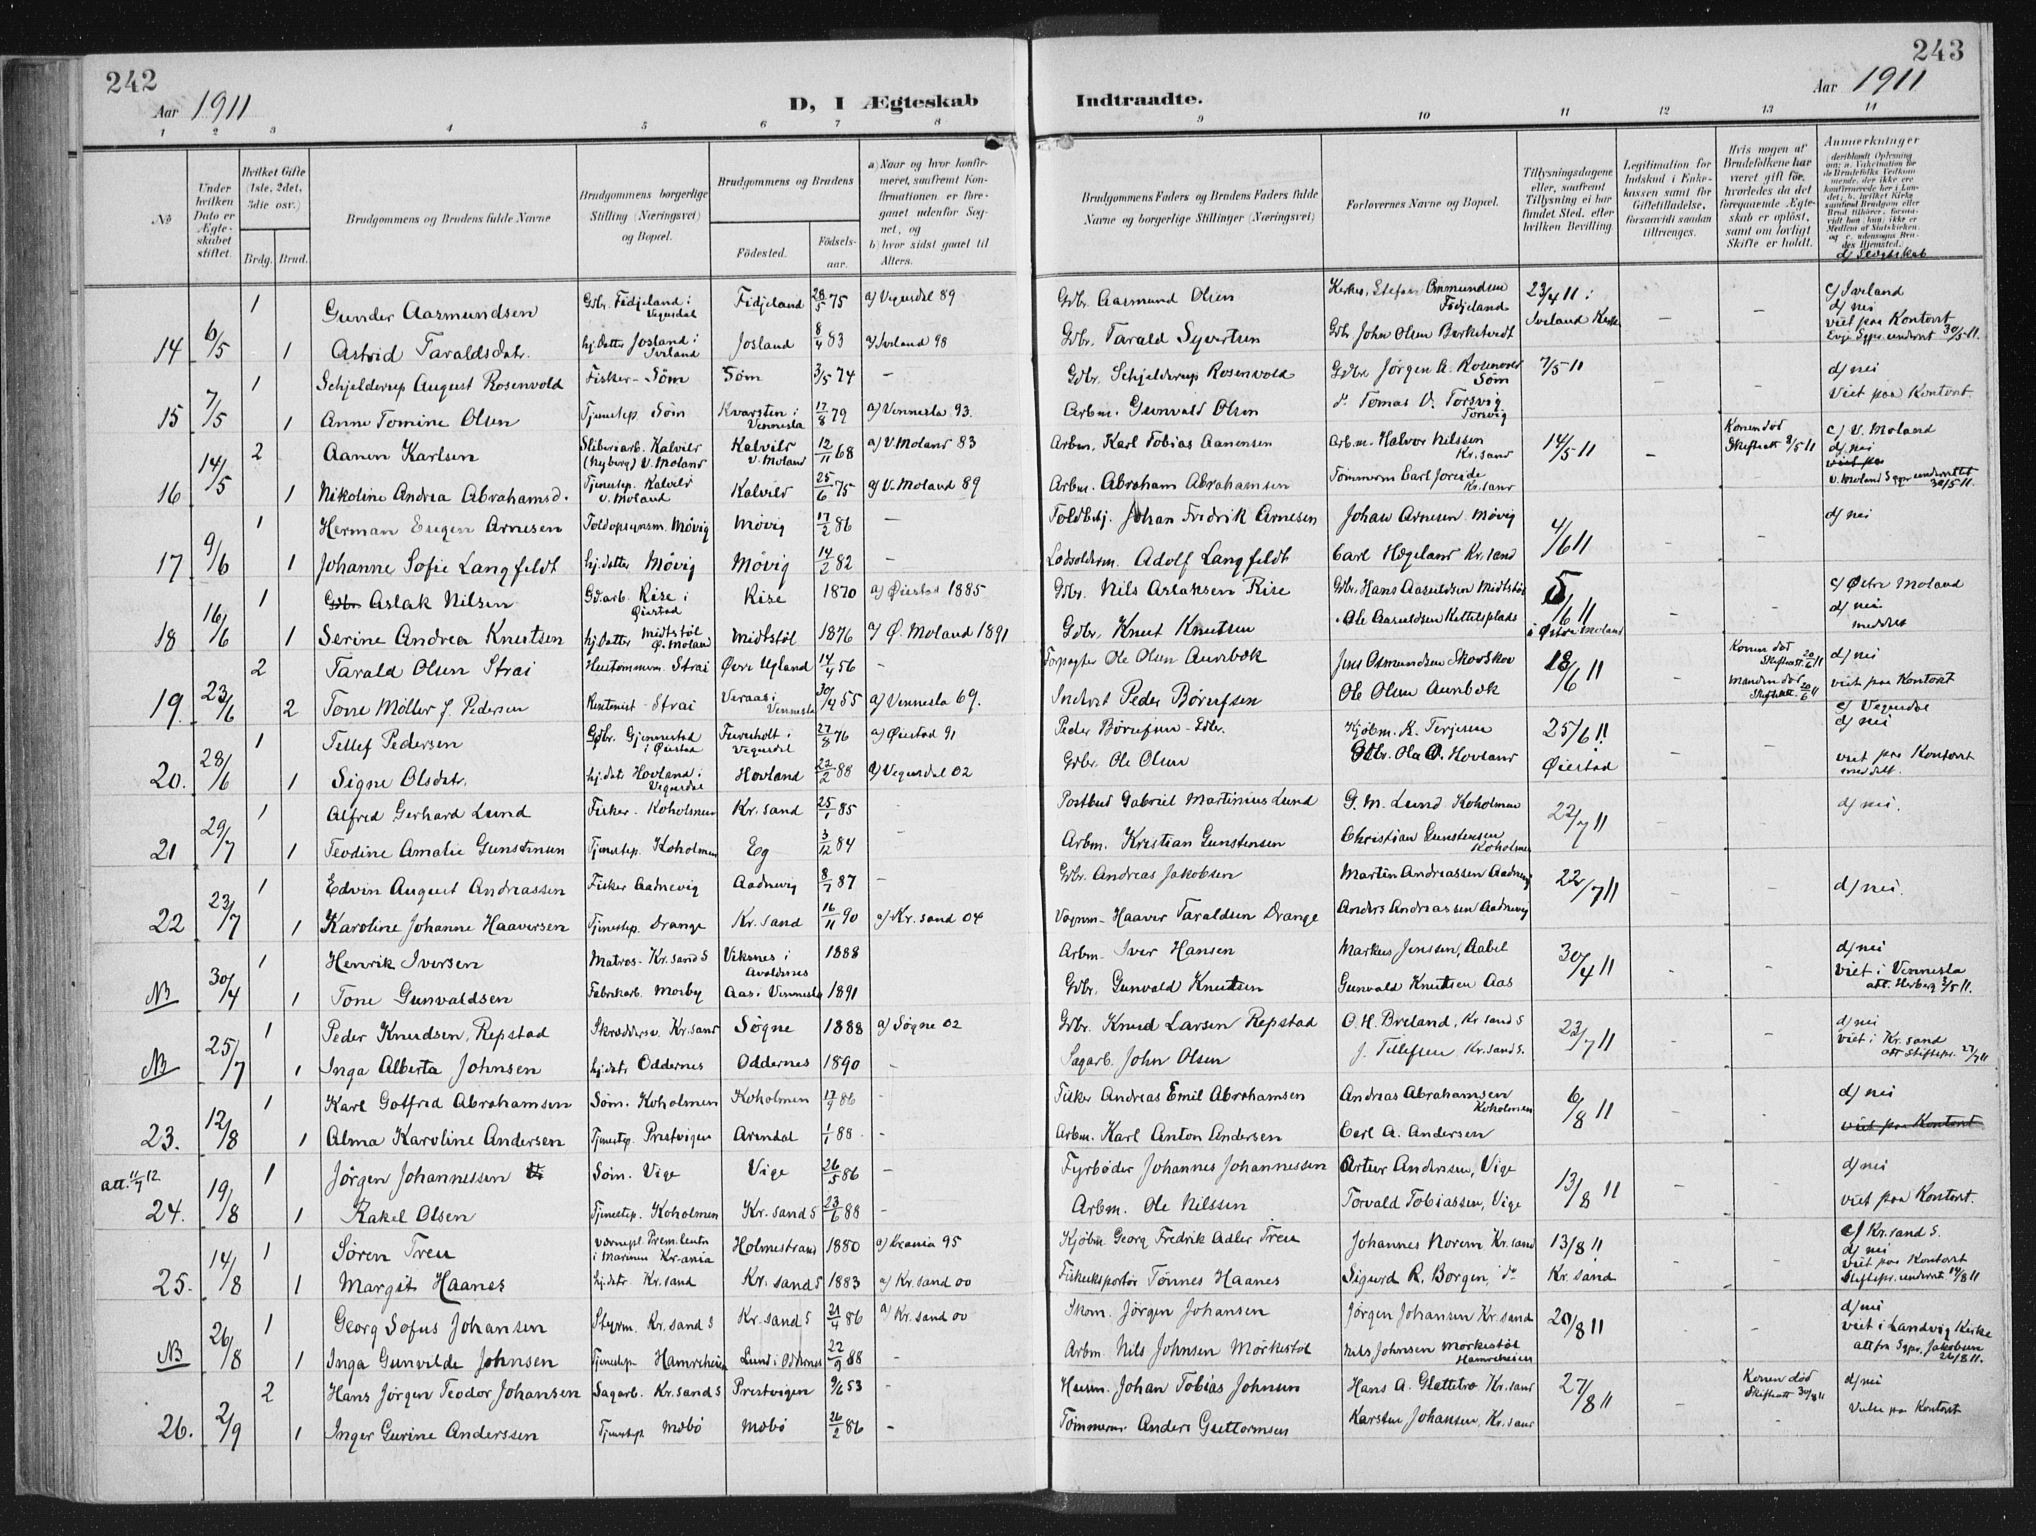 242
Aar 1911
D, I Ægteskab
Indtraadte.
Aar 1911
243
1 2 3 4 5 6 7 8 9 10 11 12 13 14
No
Under hvilken Dato er Ægteskabet stiftet.
Hvilket Gifte (1ste, 2det, 3die osv.)
Brdg. Brud.
Brudgommens og Brudens fulde Navne
Brudgommens borgerlige Stilling (Næringsvei) og Bopæl.
Brudgommens og Brudens
Fødested.
Fødselsaar.
a) Naar og hvor konfirmeret, saafremt Konfirmationen er foregaaet udenfor Sognet, og
b) hvor sidst gaaet til Alters.
Brudgommens Faders og Brudens Faders fulde Navne og borgerlige Stillinger (Næringsvei)
Forlovernes Navne og Bopæl.
Tillysningsdagene eller, saafremt Tillysning ei har fundet Sted, efter hvilken Bevilling.
Legitimation for Indskud i Enkekassen samt for Giftetilladelse, forsaavidt saadan tiltrænges.
Hvis nogen af Brudefolkene har været gift før, hvorledes da det foregaaende Ægteskab er opløst, samt om lovligt Skifte er holdt.
Anmerkninger
d) Slegtskab
1 Gunder Aasmundsen Gdbr. Fidjeland i Vegusdal Fidjeland 28/5 75 a) Vegusdal 89 Gdbr. Aasmund Olsen Fidjeland 23/4 11 i c) Iveland d) nei
14 6/5 1 Astrid Taraldsdatr. hj. datter Josland i Iveland Josland 8/4 83 a) Iveland 98 Gdbr. Tarald Syvertsen Gdb. John Olsen Birketvedt Iveland Kirke viet paa Kontoret 30/5 11.
1 Schjelderup August Rosenvold Fisker - Søm Søm 3/5 74 — Gdbr. Schjelderup Rosenvold Gdbr Jørgen A. Rosenvold Søm 7/5 11 d) nei
15 7/5 1 Anne Tomine Olsen Tjenestep. Søm Kvarsten i Vennesla 17/8 79 a) Vennesla 93. Arbm. Gunvald Olsen do Tomas V. Torsvig Torsvig Viet paa Kontoret.
2 Aanen Karlsen Sliberiarb. Kalvild (Nyberg) V. Moland Kalvild V. Moland 12/11 68 a) V. Moland 83 Arbm. Karl Tobias Aanensen Arb.m. Halvor Nilssen Kr.sand 14/5 11 Konen død Skifteatt 8/5 11 c) V. Moland d) nei
16 14/5 1 Nikoline Andrea Abrahamsd. Tjenestep. Kalvild V. Moland Kalvild 25/6 75 a) V. Moland 89 Arbm. Abraham Abrahamsen Tømmerm Carl Kr.sand V. Moland Sgpr underrettet 30/5 11.
1 Herman Eugen Arnesen Toldopsynsm. Møvig Møvig 17/2 86 — Toldbetj. Johan Fredrik Arnesen Johan Arnesen Møvig 4/6 11 d) nei
17 9/6 1 Johanne Sofie Langfeldt hj. datter Møvig Møvig 14/2 82 Lodsolderm. Adolf Langfeldt Carl Hægeland Kr.sand
1 Aslak Nilsen Gdarb. Rise i Øiestad Rise 1870 a) Øiestad 1885 Gdbr. Nils Aslaksen Rise Gdbr. Hans Aasuldsen Midtstøl 5/6 11 c) Østre Moland d) nei
18 16/6 1 Serine Andrea Knutsen hj. datter Midtstøl Ø. Moland Midtstøl 1876 a) Ø. Moland 1891 Gdbr. Knut Knutsen Ole Aasuldsen Kettelsplads i Østre Moland meddelt
2 Tarald Olsen Strai Hustømmerm. Strai Øvre Ugland 14/4 56 — Forpagter Ole Olsen Aurebæk Jens Osmundsen Skovskor 18/6 11 Konen død Skifteatt. 20/6 11 d) nei
19 23/6 2 Tone Möller f. Pedersen Rentenist - Strai Veraas i Vennesla 30/4 55 a) Vennesla 69. Inderst Peder Børufsen Ole Olsen Aurebæk Manden død Skifteatt. 20/6 11 viet paa Kontoret
1 Tellef Pedersen Gdbr. Gjennestad i Øiestad Fuereholt i Vegusdal 27/8 76 a) Øiestad 91 Peder Børufsen - Gdbr. Kjøbm. K. Terjesen 25/6 11 c) Vegusdal d) nei
20. 28/6 1 Signe Olsdatr. hj. datr Hovland i Vegusdal Hovland 22/2 88 a) Vegusdal 02 Gdbr. Ole Olsen Gdbr. Ole O. Hovland Øiestad viet paa Kontoret meddelt.
1 Alfred Gerhard Lund Fisker - Koholmen Kr.sand 25/1 85 Postbud Gabriel Martinius Lund G. M. Lund Koholmen 22/7 11 d) nei.
21 29/7 1 Teodine Amalie Gunstensen Tjenestep. Koholmen Eg 3/12 84 Arbm. Kristian Gunstensen Christian Gunstensen Koholmen
1 Edvin August Andreassen Fisker Aadnevig Aadnevig 8/7 87 — Gdbr. Andreas Jakobsen Martin Andreassen Aadnevig 22/7 11 d) nei.
22 23/7 1 Karoline Johanne Haaversen Tjenestep. Drange Kr.sand 16/11 90 a) Kr.sand 04 Vognm- Haaver Taraldsen Drange Anders Andreassen Aadnevig
1 Henrik Iversen Matros - Kr.sand S Viksnes i Avaldsnes 1888 Arbm. Iver Hansen Markus Jenssen, Aabel 30/4 11 d) nei
NB 30/4 1 Tone Gunvaldsen Fabrikarb. Mosby Aas i Vennesla 1891 Gdbr. Gunvald Knutsen Gunvald Knutsen Aas viet i Vennesla att. Herberg 2/5 11.
1 Peder Knudsen, Repstad Skræddersv. Kr.sand Søgne 1888 a) Søgne 02 Gdbr. Knud Larsen Repstad O. H. Breland, Kr.sand S 23/7 11 d) nei
NB 25/7 1 Inga Alberta Johnsen hj. datr Oddernes Oddernes 1890 - Sagarb. John Olsen J. Tellefsen Kr.sand S. viet i Kr.sand att Stiftspr. 27/7 11
1 Karl Gotfred Abrahamsen Søm. Koholmen Koholmen 17/9 86 - Fisker Andreas Emil Abrahamsen Andreas Abrahamsen Koholmen 6/8 11 d) nei
23. 12/8 1 Alma Karoline Andersen Tjenestep. Prestvigen Arendal 1/1 88 - Arbm. Karl Anton Andersen Carl A. Andersen viet paa Kontoret
att. 11/7 12 1 Jørgen Johannessen Søm. Vige Vige 26/5 86 - Fyrbøder Johannes Johannessen Artur Andersen, Vige 13/8 11 d) nei
24. 19/8 1 Rakel Olsen Tjenestep. Koholmen Kr.sand S 23/6 88 - Arbm. Ole Nilssen Torvald Tobiassen, Vige viet paa Kontoret.
1 Søren Treu Værnepl. Prem.leutn i Marinen Kr.ania Holmestrand 1880 a) Kr.ania 95 Kjøbm Georg Fredrik Adler Treu Johannes Norem Kr.sand 13/8 11 c) Kr.sand S. d) nei
25. 14/8 1 Margit Haanes hj. datr Kr.sand Kr.sand S 1883 a) Kr.sand 00 Fiskeeksportør Tønnes Haanes Sigurd R. Borgen, do Kr.sand viet paa Kontoret Stiftspr. underret. 14/8 11
1 Georg Sofus Johansen Styrm. Kr.sand S Kr.sand S 21/4 86 a) Kr.sand 00 Skom. Jørgen Johansen Jørgen Johansen Kr.sand 20/8 11 d) nei
NB 26/8 1 Inga Gunvilde Johnsen Tjenestep Hamreheien Lund i Oddernes 22/9 88 - Arbm. Nils Johnsen Mørkestøl Nils Johnsen Mørkestøl Hamreheien viet i Landvig Kirke att fra Sgpr. Jakobsen 26/8 11.
2 Hans Jørgen Teodor Johansen Sagarb. Kr.sand S Prestvigen 9/6 53 - Husm. Johan Tobias Johnsen Hans A. Glattetre Kr.sand 27/8 11 Konen død Skifteatt 30/8 11 d) nei
26. 2/9 1 Inger Gurine Anderssen Tjenestep Mæbø Mæbø 26/2 86 - Tømmerm Anders Guttormsen Karsten Johansen, Kr.sand Viet paa Kontoret